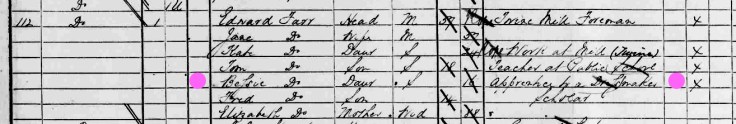 Do
112 Do 1 Edward Farr Head M 57 Twine Mill Foreman x
Jane Do Wife M x
Kate Do Daur S Work at Mill (Twine) x
Tom Do Son S 18 Teacher at Public School x
Bessie Do Daur S 16 Apprentice to a Dressmaker x
Fred Do Son 14 Scholar
Elizabeth Do Mother Wid